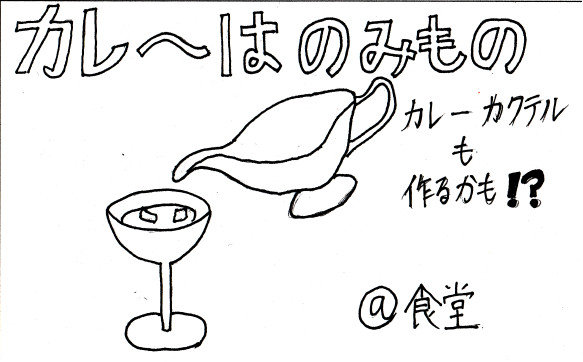 カレ〜はのみもの
カレーカクテル
も
作るかも!?
@食堂